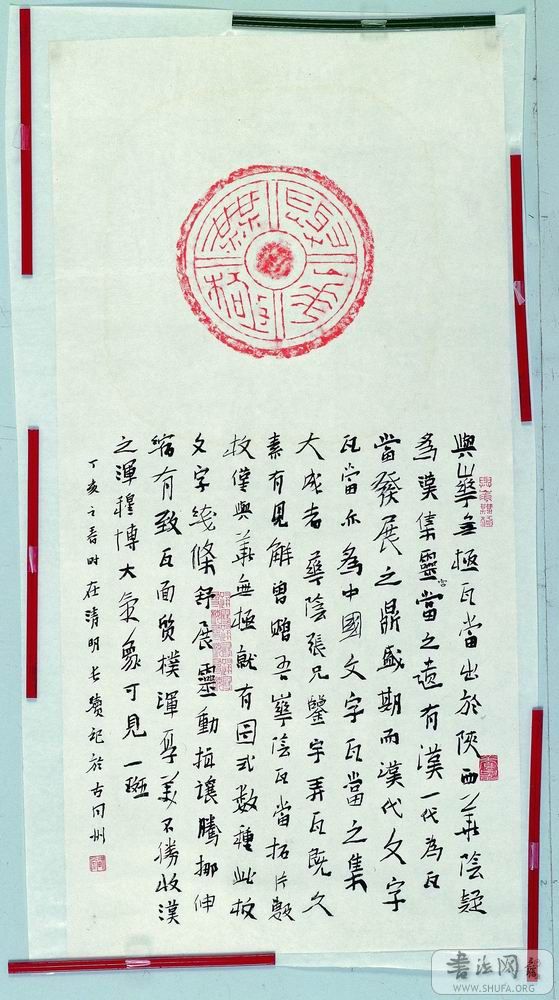 與華無極
與華無極瓦當出於陝西華陰疑
為漢集靈宮當之遺有漢一代為瓦
當發展之鼎盛期而漢代文字
瓦當亦為中國文字瓦當之集
大成者華陰張兄鑒宇弄瓦既久
素有見解曾贈吾華陰瓦當拓片數
枚僅與華無極就有圖式數種此枚
文字綫條舒展靈動揖讓騰挪伸
縮有致瓦面質樸渾厚美不勝收漢
之渾穆博大氣象可見一斑
丁亥之春時在清明 記於古同州
書法网
WWW.SHUFA.ORG